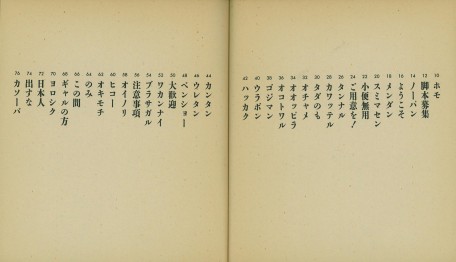 10 ホモ
12 脚本募集
14 ノーパン
16 ようこそ
18 メンダン
20 スミマセン
22 小便無用
24 ご用意を！
26 タンナル
28 カワッテル
30 タダのも
32 オチャメ
34 オオッピラ
36 オコトワル
38 ゴジマン
40 ウラボン
42 ハッカク
44 カンタン
46 ウレタン
48 ペンショー
50 大歓迎
52 ワカンナイ
54 ブラサガル
56 注意事項
58 オイノリ
60 ヒコー
62 オキモチ
64 のみ
66 この間
68 ギャルの方
70 ヨロシク
72 日本人
74 出すな
76 カソーバ